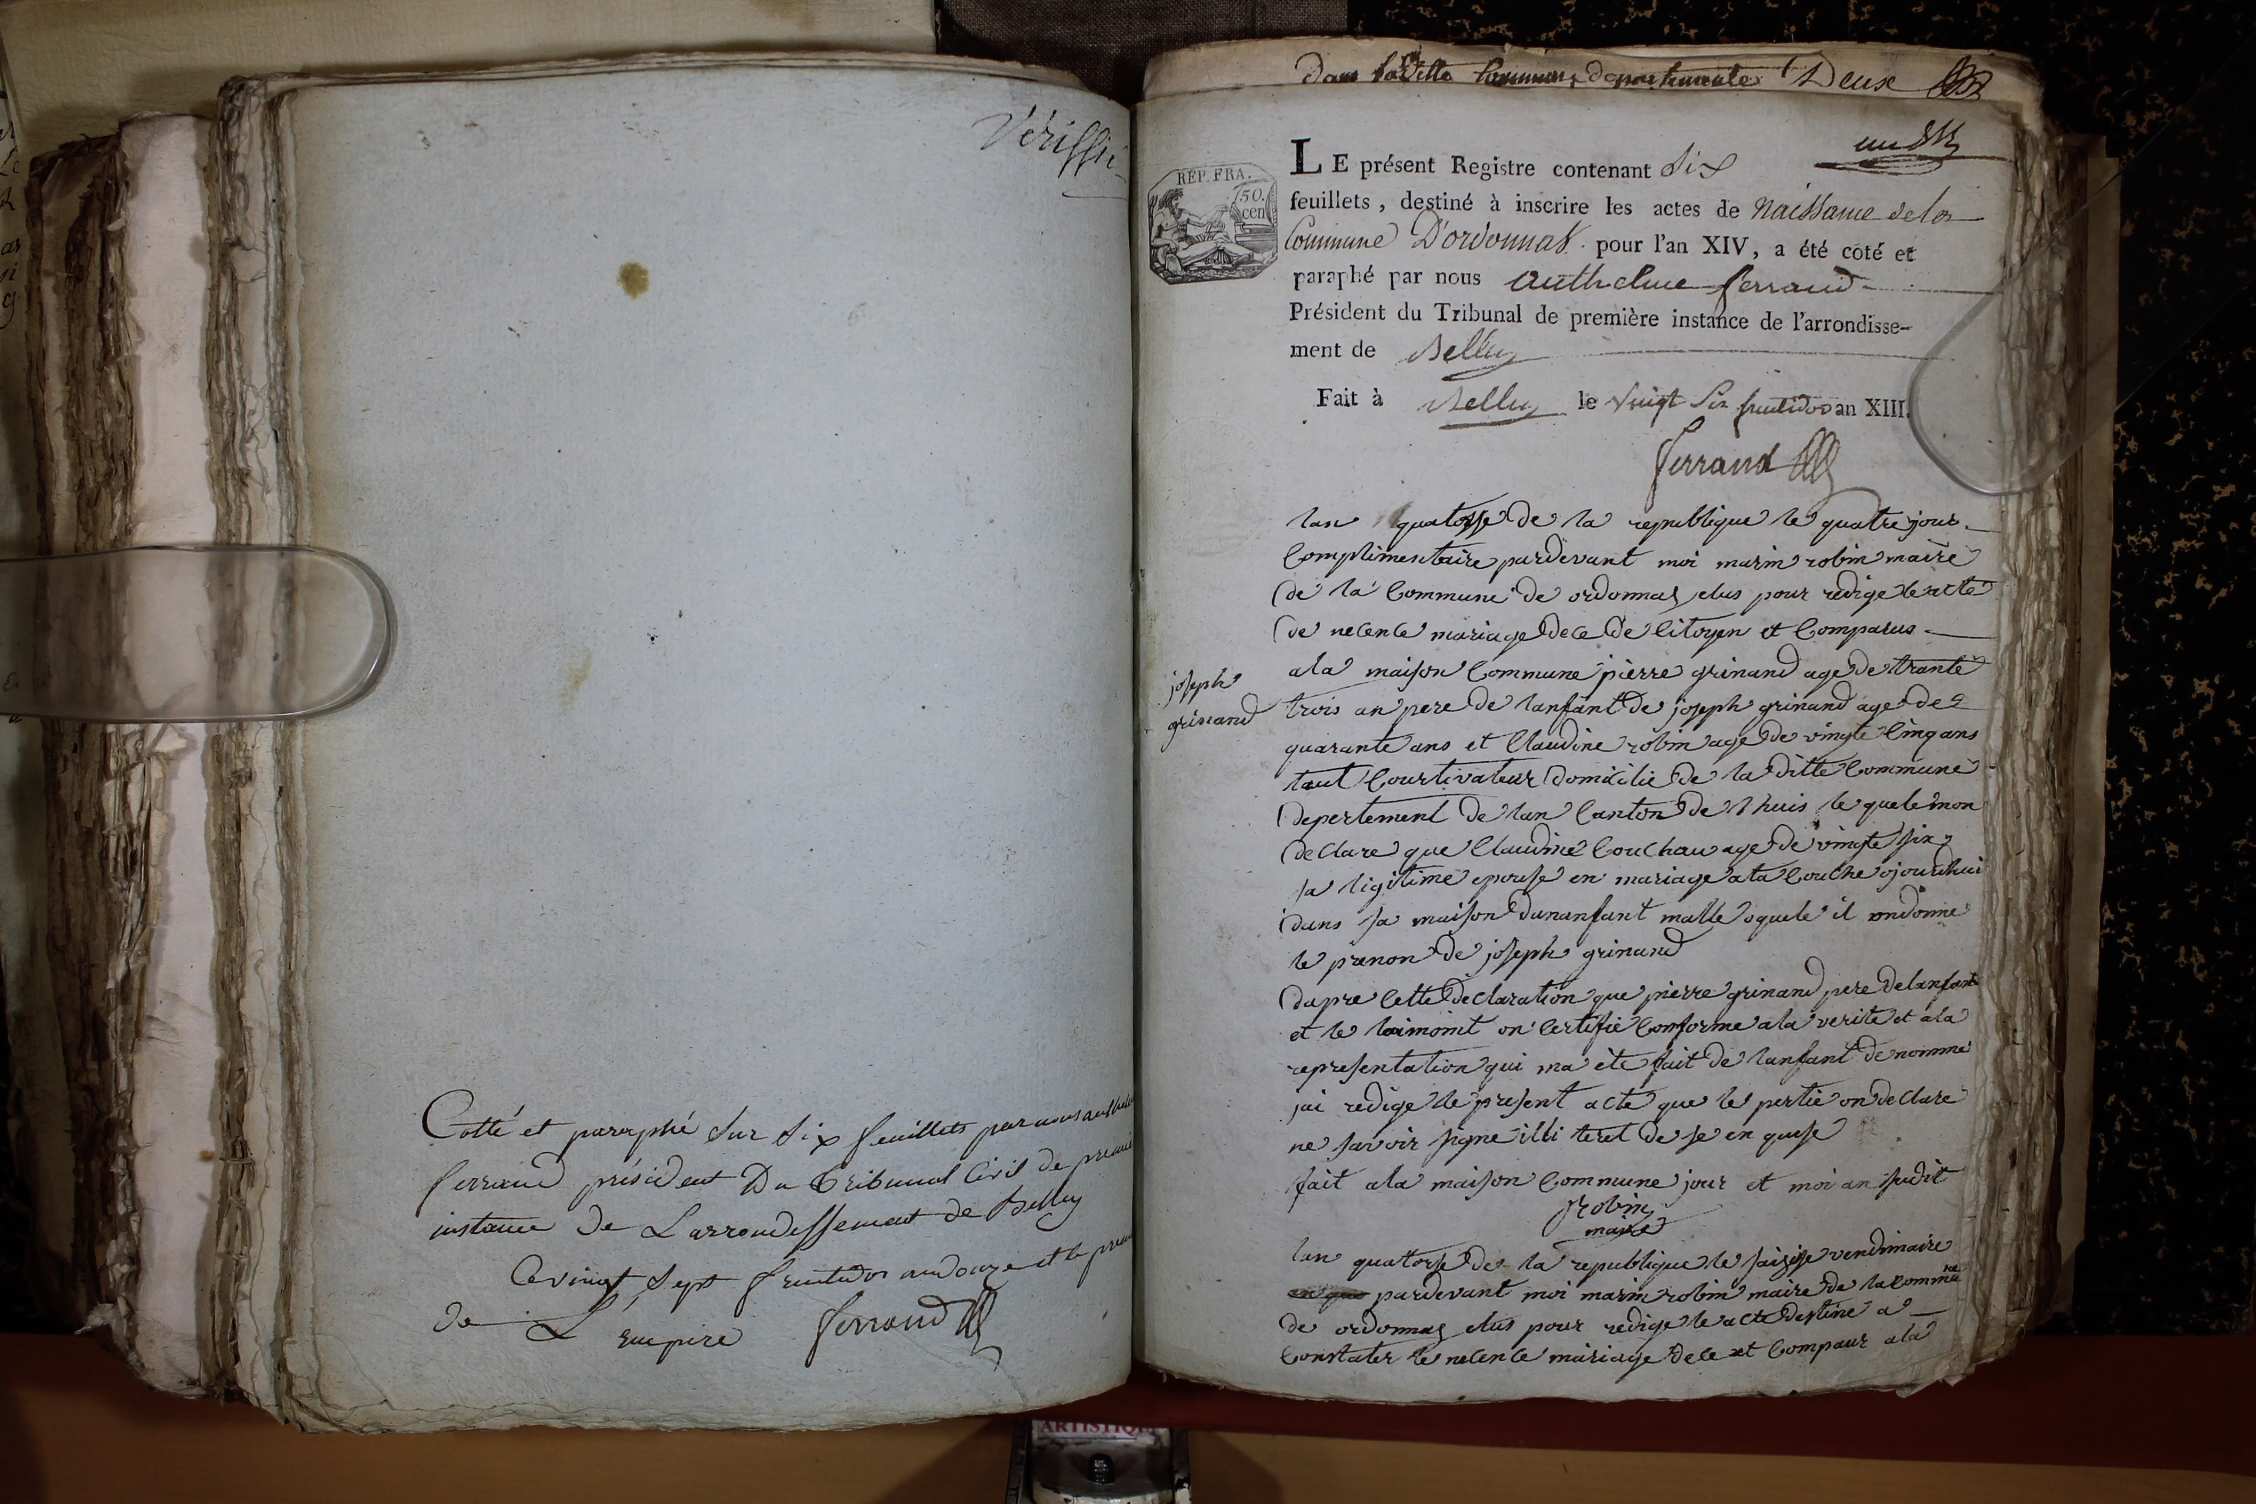 Vériffié
Cotté et paraphé sur six feuillets par nous
ferrand président Du Tribunal Civil de
instance De Larrondissement de Belley
Ce vingt sept fructidor an douze et le
de L'
Empire ferrand
Dans la ditte Commune departemente Deux
un
REP. FRA.
50.
cen
LE présent Registre contenant six
feuillets, destiné à inscrire les actes de Naissance de la
Commune D'ordonnas pour l'an XIV, a été coté et
paraphé par nous Anthelme ferrand
Président du Tribunal de première instance de l'arrondisse-
ment de Belley
Fait à Belley le vingt six fructidor an XIII.
ferrand
lan quatorse de la republique le quatre jour
Complimentaire pardevant moi marin robin maire
de la Commune de ordonnas elus pour redige le acte
de necence mariage dece de Citoyen et Comparus
a la maison Commune pierre grinand age de trante
joseph
grinand
trois an pere de lanfant de joseph grinand age de
quarante ans et Claudine robin age de vingte Cinq ans
tout Courtivateur domicilie de la ditte Commune
depertement de lan Canton de lhuis le quele mon
declare que Claudine Couchou age de vingte six
sa ligitime epouse en mariage ata Couche ojourdhui
dans sa maison dunanfant malle oquele il ondonne
le prenon de joseph grinand
dapre Cette declaration que pierre grinand pere delanfant
et le taimoint on Certifié Conforme a la verite et a la
representation qui ma ete fait de lanfant denomme
jai redige le present acte que le pertie on declare
ne savoir signe illi teret de se en quese
fait a la maison Commune jour et moi an sudit
robin
maire
lan quatorse de la republique le saizise vendimaire
pardevant moi marin robin maire de la commune
de ordonnas elus pour redige le acte destine a
Constater le necence mariage dece et Compaur a la
ARTISTIQ